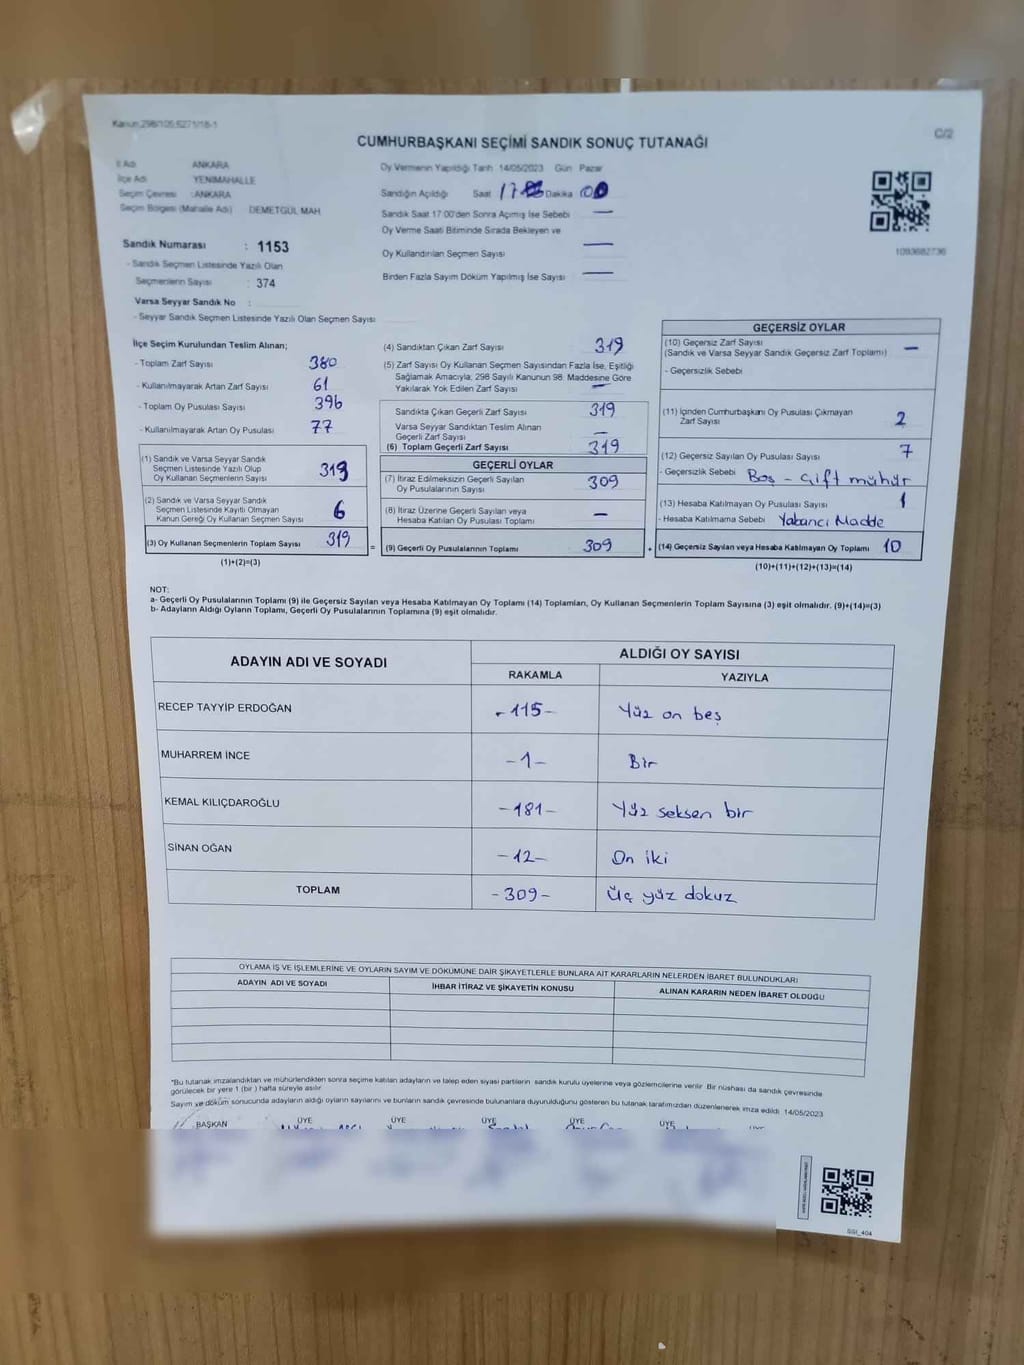 Kanun:298/105,6271/18-1
C/2
CUMHURBAŞKANI SEÇİMİ SANDIK SONUÇ TUTANAĞI
İl Adı ANKARA
İlçe Adı YENİMAHALLE
Seçim Çevresi : ANKARA
Seçim Bölgesi (Mahalle Adı) DEMETGÜL MAH
Sandık Numarası : 1153
- Sandık Seçmen Listesinde Yazılı Olan
Seçmenlerin Sayısı : 374
Varsa Seyyar Sandık No :
- Seyyar Sandık Seçmen Listesinde Yazılı Olan Seçmen Sayısı :
Oy Vermenin Yapıldığı Tarih 14/05/2023 Gün Pazar
Sandığın Açıldığı Saat 17 Dakika 00
Sandık Saat 17:00'den Sonra Açılmış İse Sebebi —
Oy Verme Saati Bitiminde Sırada Bekleyen ve
Oy Kullandırılan Seçmen Sayısı —
Birden Fazla Sayım Döküm Yapılmış İse Sayısı —
1093682736
İlçe Seçim Kurulundan Teslim Alınan;
- Toplam Zarf Sayısı 380
- Kullanılmayarak Artan Zarf Sayısı 61
- Toplam Oy Pusulası Sayısı 396
- Kullanılmayarak Artan Oy Pusulası 77
(1) Sandık ve Varsa Seyyar Sandık
Seçmen Listesinde Yazılı Olup
Oy Kullanan Seçmenlerin Sayısı 313
(2) Sandık ve Varsa Seyyar Sandık
Seçmen Listesinde Kayıtlı Olmayan
Kanun Gereği Oy Kullanan Seçmen Sayısı 6
(3) Oy Kullanan Seçmenlerin Toplam Sayısı 319 =
(1)+(2)=(3)
(4) Sandıktan Çıkan Zarf Sayısı 319
(5) Zarf Sayısı Oy Kullanan Seçmen Sayısından Fazla İse, Eşitliği
Sağlamak Amacıyla; 298 Sayılı Kanunun 98. Maddesine Göre
Yakılarak Yok Edilen Zarf Sayısı —
Sandıkta Çıkan Geçerli Zarf Sayısı 319
Varsa Seyyar Sandıktan Teslim Alınan
Geçerli Zarf Sayısı —
(6) Toplam Geçerli Zarf Sayısı 319
GEÇERLİ OYLAR
(7) İtiraz Edilmeksizin Geçerli Sayılan
Oy Pusulalarının Sayısı 309
(8) İtiraz Üzerine Geçerli Sayılan veya
Hesaba Katılan Oy Pusulası Toplamı —
(9) Geçerli Oy Pusulalarının Toplamı 309 +
GEÇERSİZ OYLAR
(10) Geçersiz Zarf Sayısı —
(Sandık ve Varsa Seyyar Sandık Geçersiz Zarf Toplamı)
- Geçersizlik Sebebi
(11) İçinden Cumhurbaşkanı Oy Pusulası Çıkmayan
Zarf Sayısı 2
(12) Geçersiz Sayılan Oy Pusulası Sayısı 7
- Geçersizlik Sebebi Boş - çift mühür
(13) Hesaba Katılmayan Oy Pusulası Sayısı 1
- Hesaba Katılmama Sebebi Yabancı Madde
(14) Geçersiz Sayılan veya Hesaba Katılmayan Oy Toplamı 10
(10)+(11)+(12)+(13)=(14)
NOT:
a- Geçerli Oy Pusulalarının Toplamı (9) ile Geçersiz Sayılan veya Hesaba Katılmayan Oy Toplamı (14) Toplamları, Oy Kullanan Seçmenlerin Toplam Sayısına (3) eşit olmalıdır. (9)+(14)=(3)
b- Adayların Aldığı Oyların Toplamı, Geçerli Oy Pusulalarının Toplamına (9) eşit olmalıdır.
ADAYIN ADI VE SOYADI
ALDIĞI OY SAYISI
RAKAMLA YAZIYLA
RECEP TAYYİP ERDOĞAN -115- Yüz on beş
MUHARREM İNCE -1- Bir
KEMAL KILIÇDAROĞLU -181- Yüz seksen bir
SİNAN OĞAN -12- On iki
TOPLAM -309- Üç yüz dokuz
OYLAMA İŞ VE İŞLEMLERİNE VE OYLARIN SAYIM VE DÖKÜMÜNE DAİR ŞİKAYETLERLE BUNLARA AİT KARARLARIN NELERDEN İBARET BULUNDUKLARI
ADAYIN ADI VE SOYADI İHBAR İTİRAZ VE ŞİKAYETİN KONUSU ALINAN KARARIN NEDEN İBARET OLDUĞU
*Bu tutanak imzalandıktan ve mühürlendikten sonra seçime katılan adayların ve talep eden siyasi partilerin sandık kurulu üyelerine veya gözlemcilerine verilir. Bir nüshası da sandık çevresinde
görülecek bir yere 1 (bir) hafta süreyle asılır.
Sayım ve döküm sonucunda adayların aldığı oyların sayılarını ve bunların sandık çevresinde bulunanlara duyurulduğunu gösteren bu tutanak tarafımızdan düzenlenerek imza edildi. 14/05/2023
BAŞKAN ÜYE ÜYE ÜYE ÜYE ÜYE
SSI_404